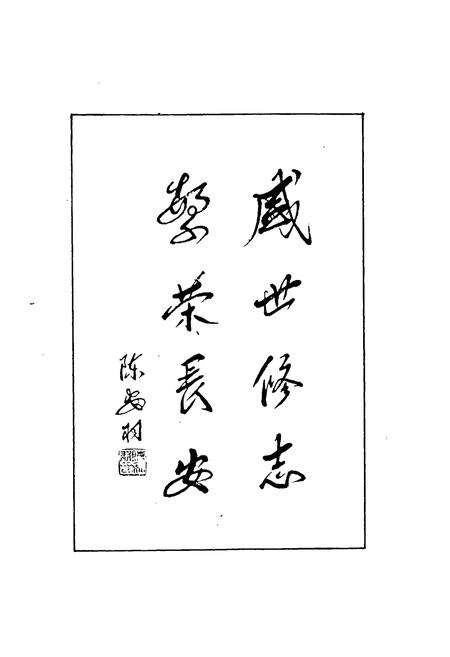 盛世修志
繁荣长安
陈
羽